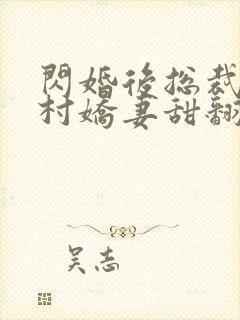 閃婚後總裁
村嬌妻甜翻
吴志